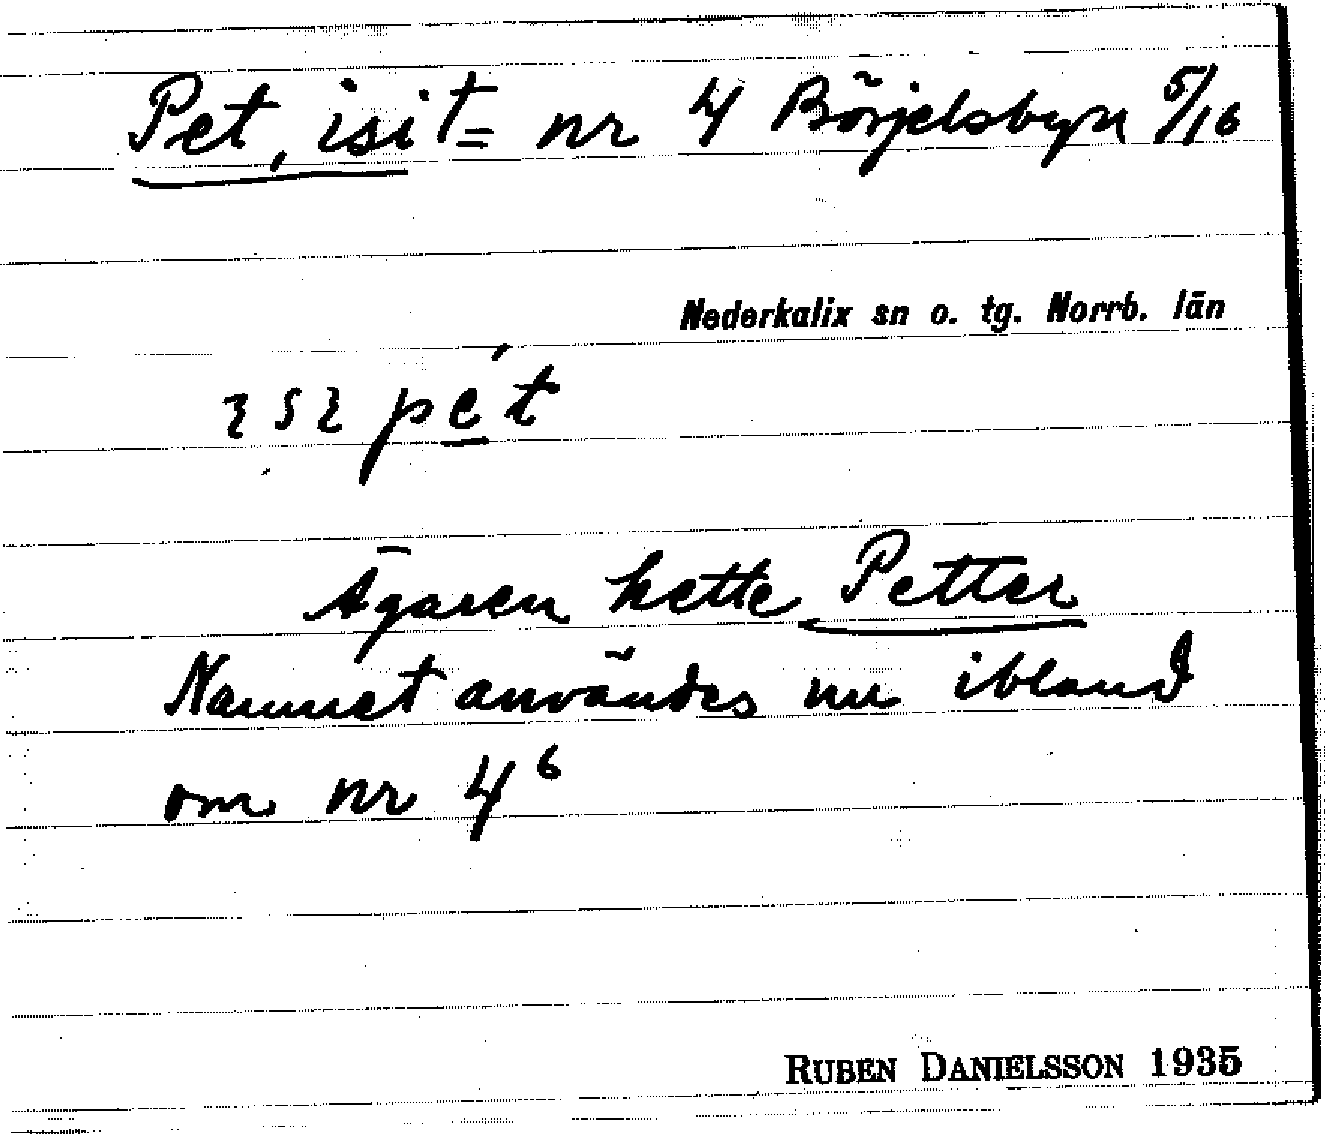 Pet, isit= nr 4 Börjelsbyn 5/16
Nederkalix sn o. tg. Norrb. län
ɿsɿ pe̲´t
Ägaren hette Petter
Namnet användes nu ibland
om nr 4⁶
RUBEN DANIELSSON 1935